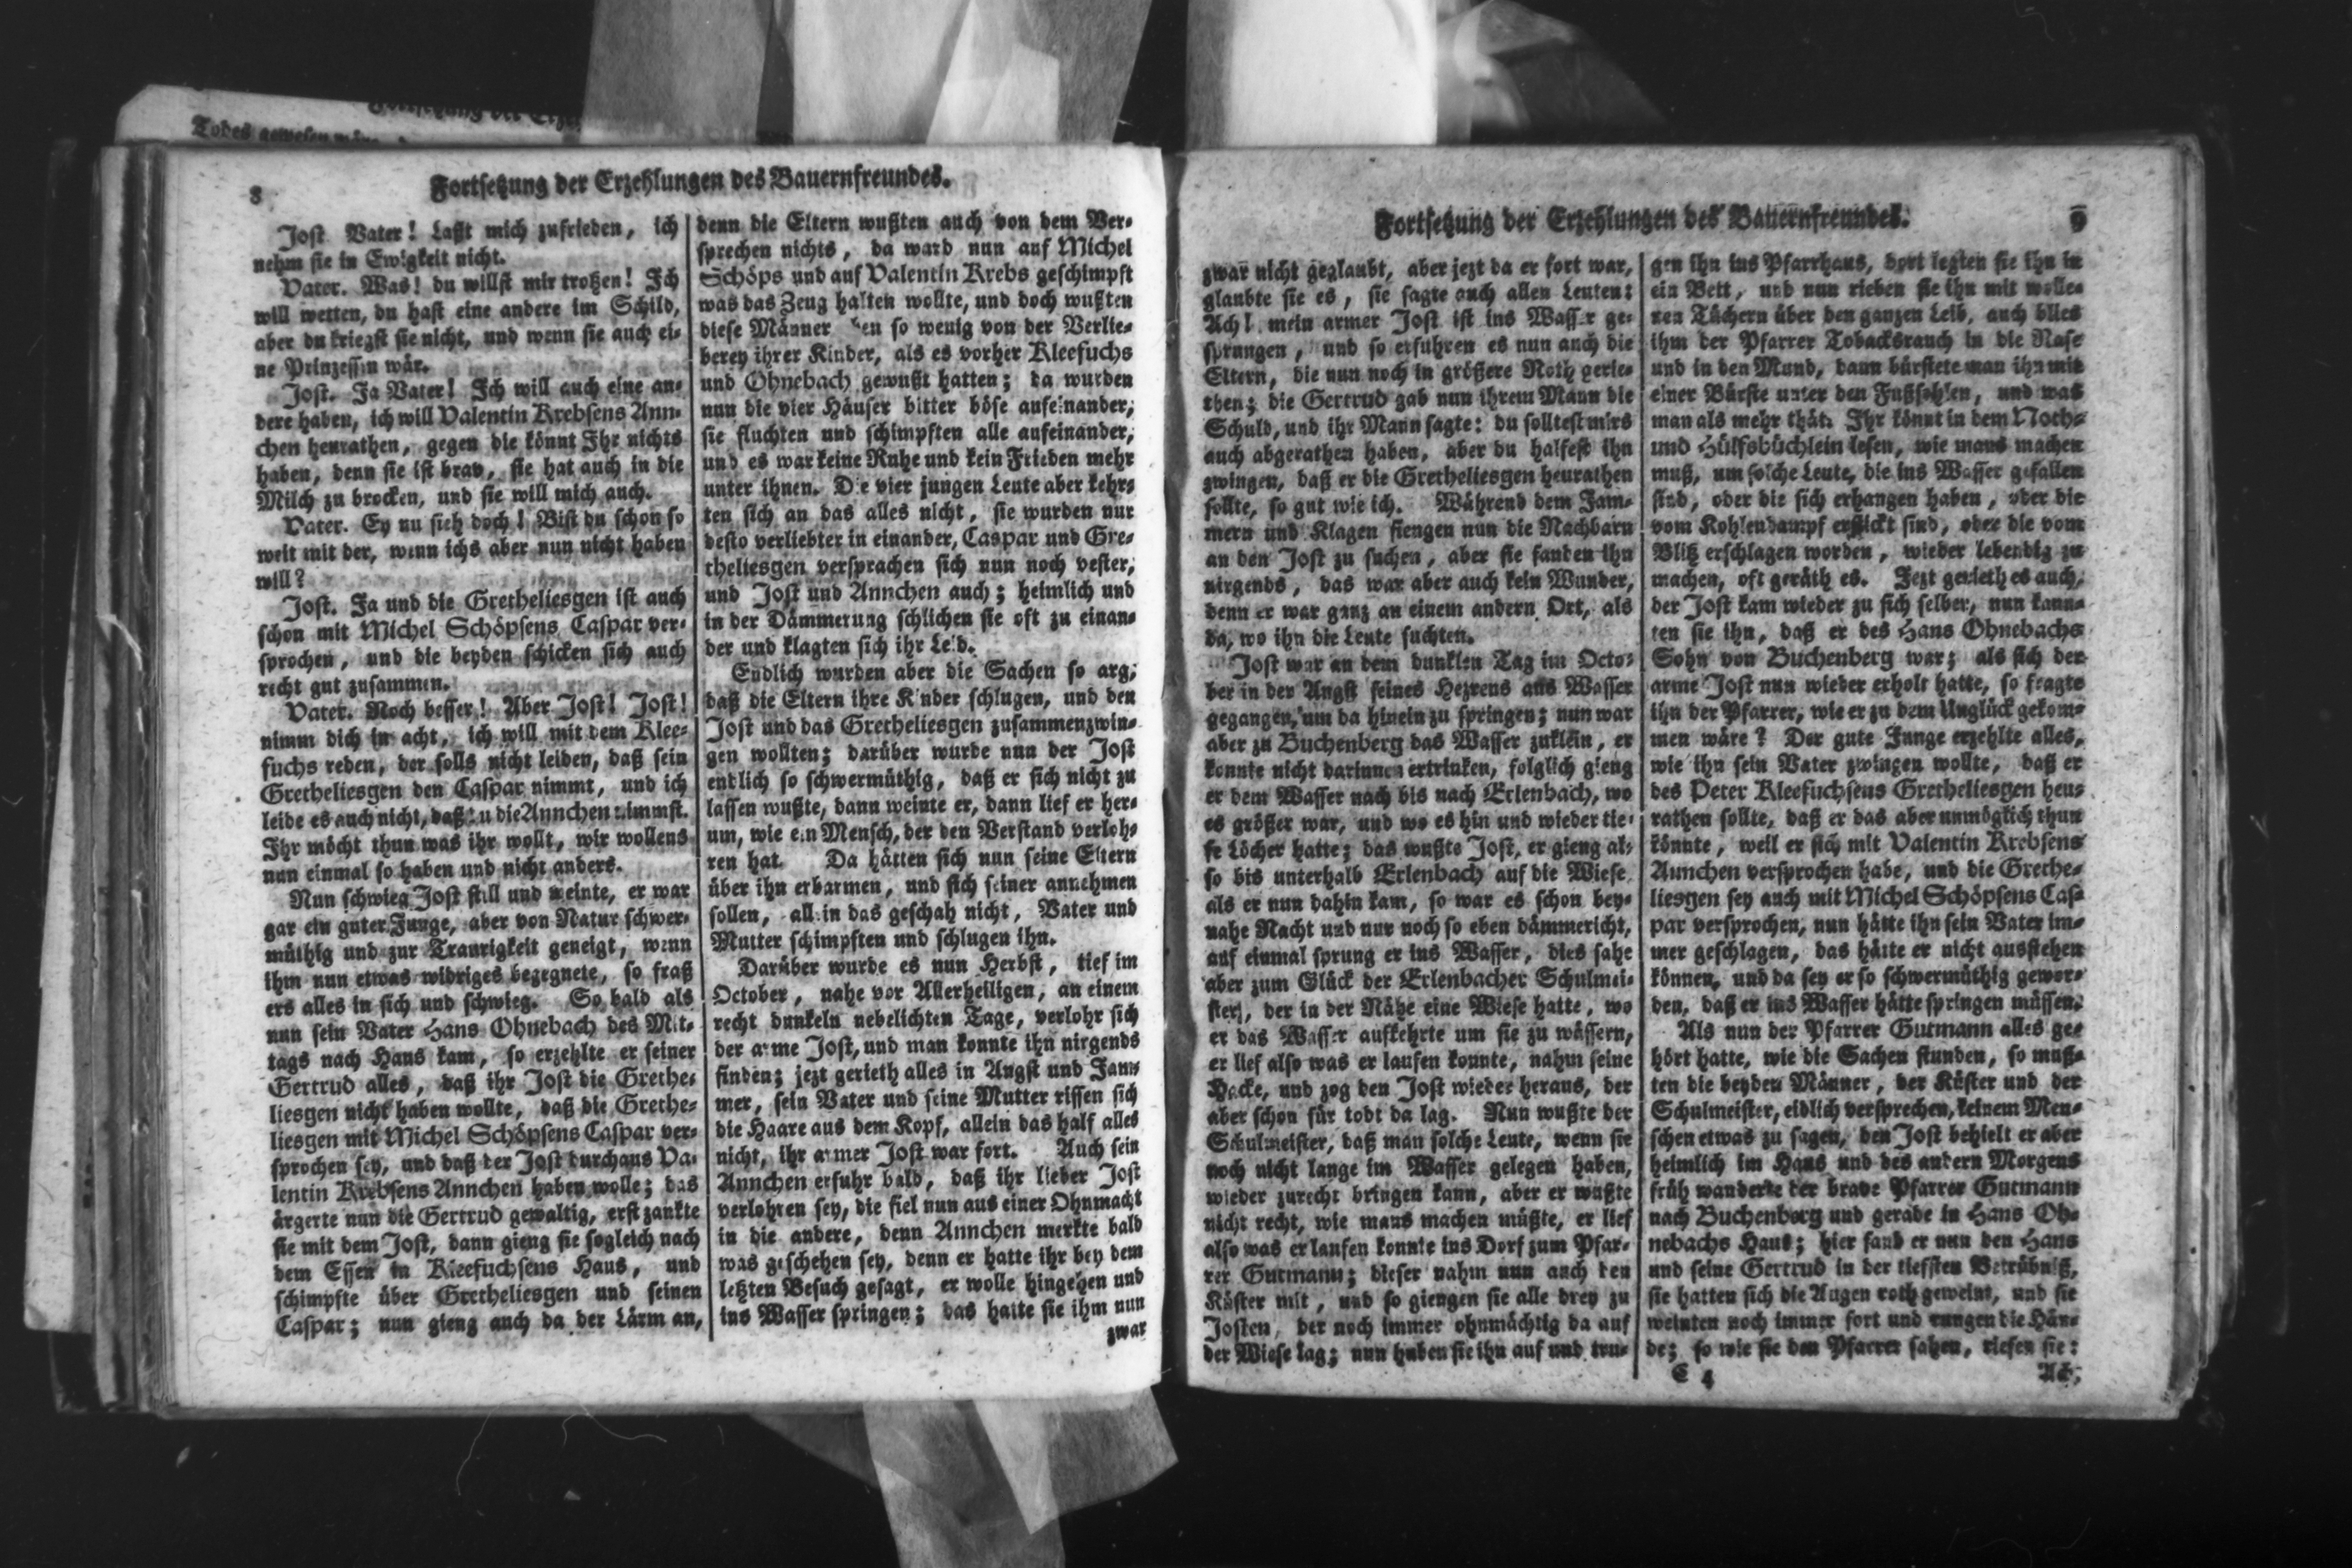 Todes gewesen
8
Fortsetzung der Erzehlungen des Bauernfreundes.
Jost. Vater! Laßt mich zufrieden, ich
nehm sie in Ewigkeit nicht.
Vater. Was! du willst mir trotzen! Ich
will wetten, du hast eine andere im Schild,
aber du kriegst sie nicht, und wenn sie auch ei-
ne Prinzessin wär.
Jost. Ja Vater! Ich will auch eine an-
dere haben, ich will Valentin Krebsens Ann-
chen heurathen, gegen die könnt Ihr nichts
haben, denn sie ist brav, sie hat auch in die
Milch zu brocken, und sie will mich auch.
Vater. Ey nu sieh doch! Bist du schon so
weit mit der, wenn ichs aber nun nicht haben
will?
Jost. Ja und die Gretheliesgen ist auch
schon mit Michel Schöpsens Caspar ver-
sprochen, und die beyden schicken sich auch
recht gut zusammen.
Vater. Noch besser! Aber Jost! Jost!
nimm dich in acht, ich will mit dem Klee-
fuchs reden, der solls nicht leiden, daß sein
Gretheliesgen den Caspar nimmt, und ich
leide es auch nicht, daß du die Annchen nimmst.
Ihr möcht thun was ihr wollt, wir wollens
nun einmal so haben und nicht anders.
Nun schwieg Jost still und weinte, er war
gar ein guter Junge, aber von Natur schwer-
müthig und zur Traurigkeit geneigt, wenn
ihm nun etwas widriges begegnete, so fraß
ers alles in sich und schwieg. So bald als
nun sein Vater Hans Ohnebach des Mit-
tags nach Haus kam, so erzehlte er seiner
Gertrud alles, daß ihr Jost die Grethe-
liesgen nicht haben wollte, daß die Grethe-
liesgen mit Michel Schöpsens Caspar ver-
sprochen sey, und daß der Jost durchaus Va-
lentin Krebsens Annchen haben wolle; das
ärgerte nun die Gertrud gewaltig, erst zankte
sie mit dem Jost, dann gieng sie sogleich nach
dem Essen in Kleefuchsens Haus, und
schimpfte über Gretheliesgen und seinen
Caspar; nun gieng auch da der Lärm an,
denn die Eltern wußten auch von dem Ver-
sprechen nichts, da ward nun auf Michel
Schöps und auf Valentin Krebs geschimpft
was das Zeug halten wollte, und doch wußten
diese Männer ben so wenig von der Verlie-
berey ihrer Kinder, als es vorher Kleefuchs
und Ohnebach gewußt hatten; da wurden
nun die vier Häuser bitter böse aufeinander;
sie fluchten und schimpften alle aufeinander,
und es war keine Ruhe und kein Frieden mehr
unter ihnen. Die vier jungen Leute aber kehr-
ten sich an das alles nicht, sie wurden nur
desto verliebter in einander, Caspar und Gre-
theliesgen versprachen sich nun noch vester,
und Jost und Annchen auch; heimlich und
in der Dämmerung schlichen sie oft zu einan-
der und klagten sich ihr Leid.
Endlich wurden aber die Sachen so arg,
daß die Eltern ihre Kinder schlugen, und den
Jost und das Gretheliesgen zusammenzwin-
gen wollten; darüber wurde nun der Jost
endlich so schwermüthig, daß er sich nicht zu
lassen wußte, dann weinte er, dann lief er her-
um, wie ein Mensch, der den Verstand verloh-
ren hat. Da hätten sich nun seine Eltern
über ihn erbarmen, und sich seiner annehmen
sollen, allein das geschah nicht, Vater und
Mutter schimpften und schlugen ihn.
Darüber wurde es nun Herbst, tief im
October, nahe vor Allerheiligen, an einem
recht dunkeln nebelichten Tage, verlohr sich
der arme Jost, und man konnte ihn nirgends
finden; jezt gerieth alles in Angst und Jam-
mer, sein Vater und seine Mutter rissen sich
die Haare aus dem Kopf, allein das half alles
nicht, ihr armer Jost war fort. Auch sein
Annchen erfuhr bald, daß ihr lieber Jost
verlohren sey, die fiel nun aus einer Ohnmacht
in die andere, denn Annchen merkte bald
was geschehen sey, denn er hatte ihr bey dem
letzten Besuch gesagt, er wolle hingehen und
ins Wasser springen; das hatte sie ihm nun
zwar
Fortsetzung der Erzehlungen des Bauernfreundes.
9
zwar nicht geglaubt, aber jezt da er fort war,
glaubte sie es, sie sagte auch allen Leuten:
Ach! mein armer Jost ist ins Wasser ge-
sprungen, und so erfuhren es nun auch die
Eltern, die nun noch in größere Noth gerie-
then; die Gertrud gab nun ihrem Mann die
Schuld, und ihr Mann sagte: du solltest mirs
auch abgerathen haben, aber du halfest ihn
zwingen, daß er die Gretheliesgen heurathen
sollte, so gut wie ich. Während dem Jam-
mern und Klagen fiengen nun die Nachbarn
an den Jost zu suchen, aber sie fanden ihn
nirgends, das war aber auch kein Wunder,
denn er war ganz an einem andern Ort, als
da, wo ihn die Leute suchten.
Jost war an dem dunklen Tag im Octo-
ber in der Angst seines Herzens ans Wasser
gegangen, um da hinein zu springen; nun war
aber zu Buchenberg das Wasser zu klein, er
konnte nicht darinnen ertrinken, folglich gieng
er dem Wasser nach bis nach Erlenbach, wo
es größer war, und wo es hin und wieder tie-
fe Löcher hatte; das wußte Jost, er gieng al-
so bis unterhalb Erlenbach auf die Wiese
als er nun dahin kam, so war es schon bey-
nahe Nacht und nur noch so eben dämmericht,
auf einmal sprung er ins Wasser, dies sahe
aber zum Glück der Erlenbacher Schulmei-
ster, der in der Nähe eine Wiese hatte, wo
er das Wasser aufkehrte um sie zu wässern,
er lief also was er laufen konnte, nahm seine
Hacke, und zog den Jost wieder heraus, der
aber schon für todt da lag. Nun wußte der
Schulmeister, daß man solche Leute, wenn sie
noch nicht lange im Wasser gelegen haben,
wieder zurecht bringen kann, aber er wußte
nicht recht, wie mans machen müßte, er lief
also was er laufen konnte ins Dorf zum Pfar-
rer Gutmann; dieser nahm nun auch den
Küster mit, und so giengen sie alle drey zu
Josten, der noch immer ohnmächtig da auf
der Wiese lag; nun huben sie ihn auf und tru-
gen ihn ins Pfarrhaus, dort legten sie ihn in
ein Bett, und nun rieben sie ihn mit wolle-
nen Tüchern über den ganzen Leib, auch blies
ihm der Pfarrer Tobacksrauch in die Nase
und in den Mund, dann bürstete man ihn mit
einer Bürste unter den Fußsohlen, und was
man als mehr thät. Ihr könnt in dem Noth-
und Hülfsbüchlein lesen, wie mans machen
muß, um solche Leute, die ins Wasser gefallen
sind, oder die sich erhangen haben, oder die
vom Kohlendampf erstickt sind, oder die vom
Blitz erschlagen worden, wieder lebendig zu
machen, oft geräth es. Jezt gerieth es auch,
der Jost kam wieder zu sich selber, nun kann-
ten sie ihn, daß er des Hans Ohnebachs
Sohn von Buchenberg war; als sich der
arme Jost nun wieder erholt hatte, so fragte
ihn der Pfarrer, wie er zu dem Unglück gekom-
men wäre? Der gute Junge erzehlte alles,
wie ihn sein Vater zwingen wollte, daß er
des Peter Kleefuchsens Gretheliesgen heu-
rathen sollte, daß er das aber unmöglich thun
könnte, weil er sich mit Valentin Krebsens
Annchen versprochen habe, und die Grethe-
liesgen sey auch mit Michel Schöpsens Cas-
par versprochen, nun hätte ihn sein Vater im-
mer geschlagen, das hätte er nicht ausstehen
können, und da sey er so schwermüthig gewor-
den, daß er ins Wasser hätte springen müssen.
Als nun der Pfarrer Gutmann alles ge-
hört hatte, wie die Sachen stunden, so muß-
ten die beyden Männer, der Küster und der
Schulmeister, eidlich versprechen, keinem Men-
schen etwas zu sagen, den Jost behielt er aber
heimlich im Haus und des andern Morgens
früh wanderte der brave Pfarrer Gutmann
nach Buchenberg und gerade in Hans Oh-
nebachs Haus; hier fand er nun den Hans
und seine Gertrud in der tiefsten Betrübniß,
sie hatten sich die Augen roth geweint, und sie
weinten noch immer fort und rungen die Hän-
de; so wie sie den Pfarrer sahen, riefen sie:
C 4
Ach,